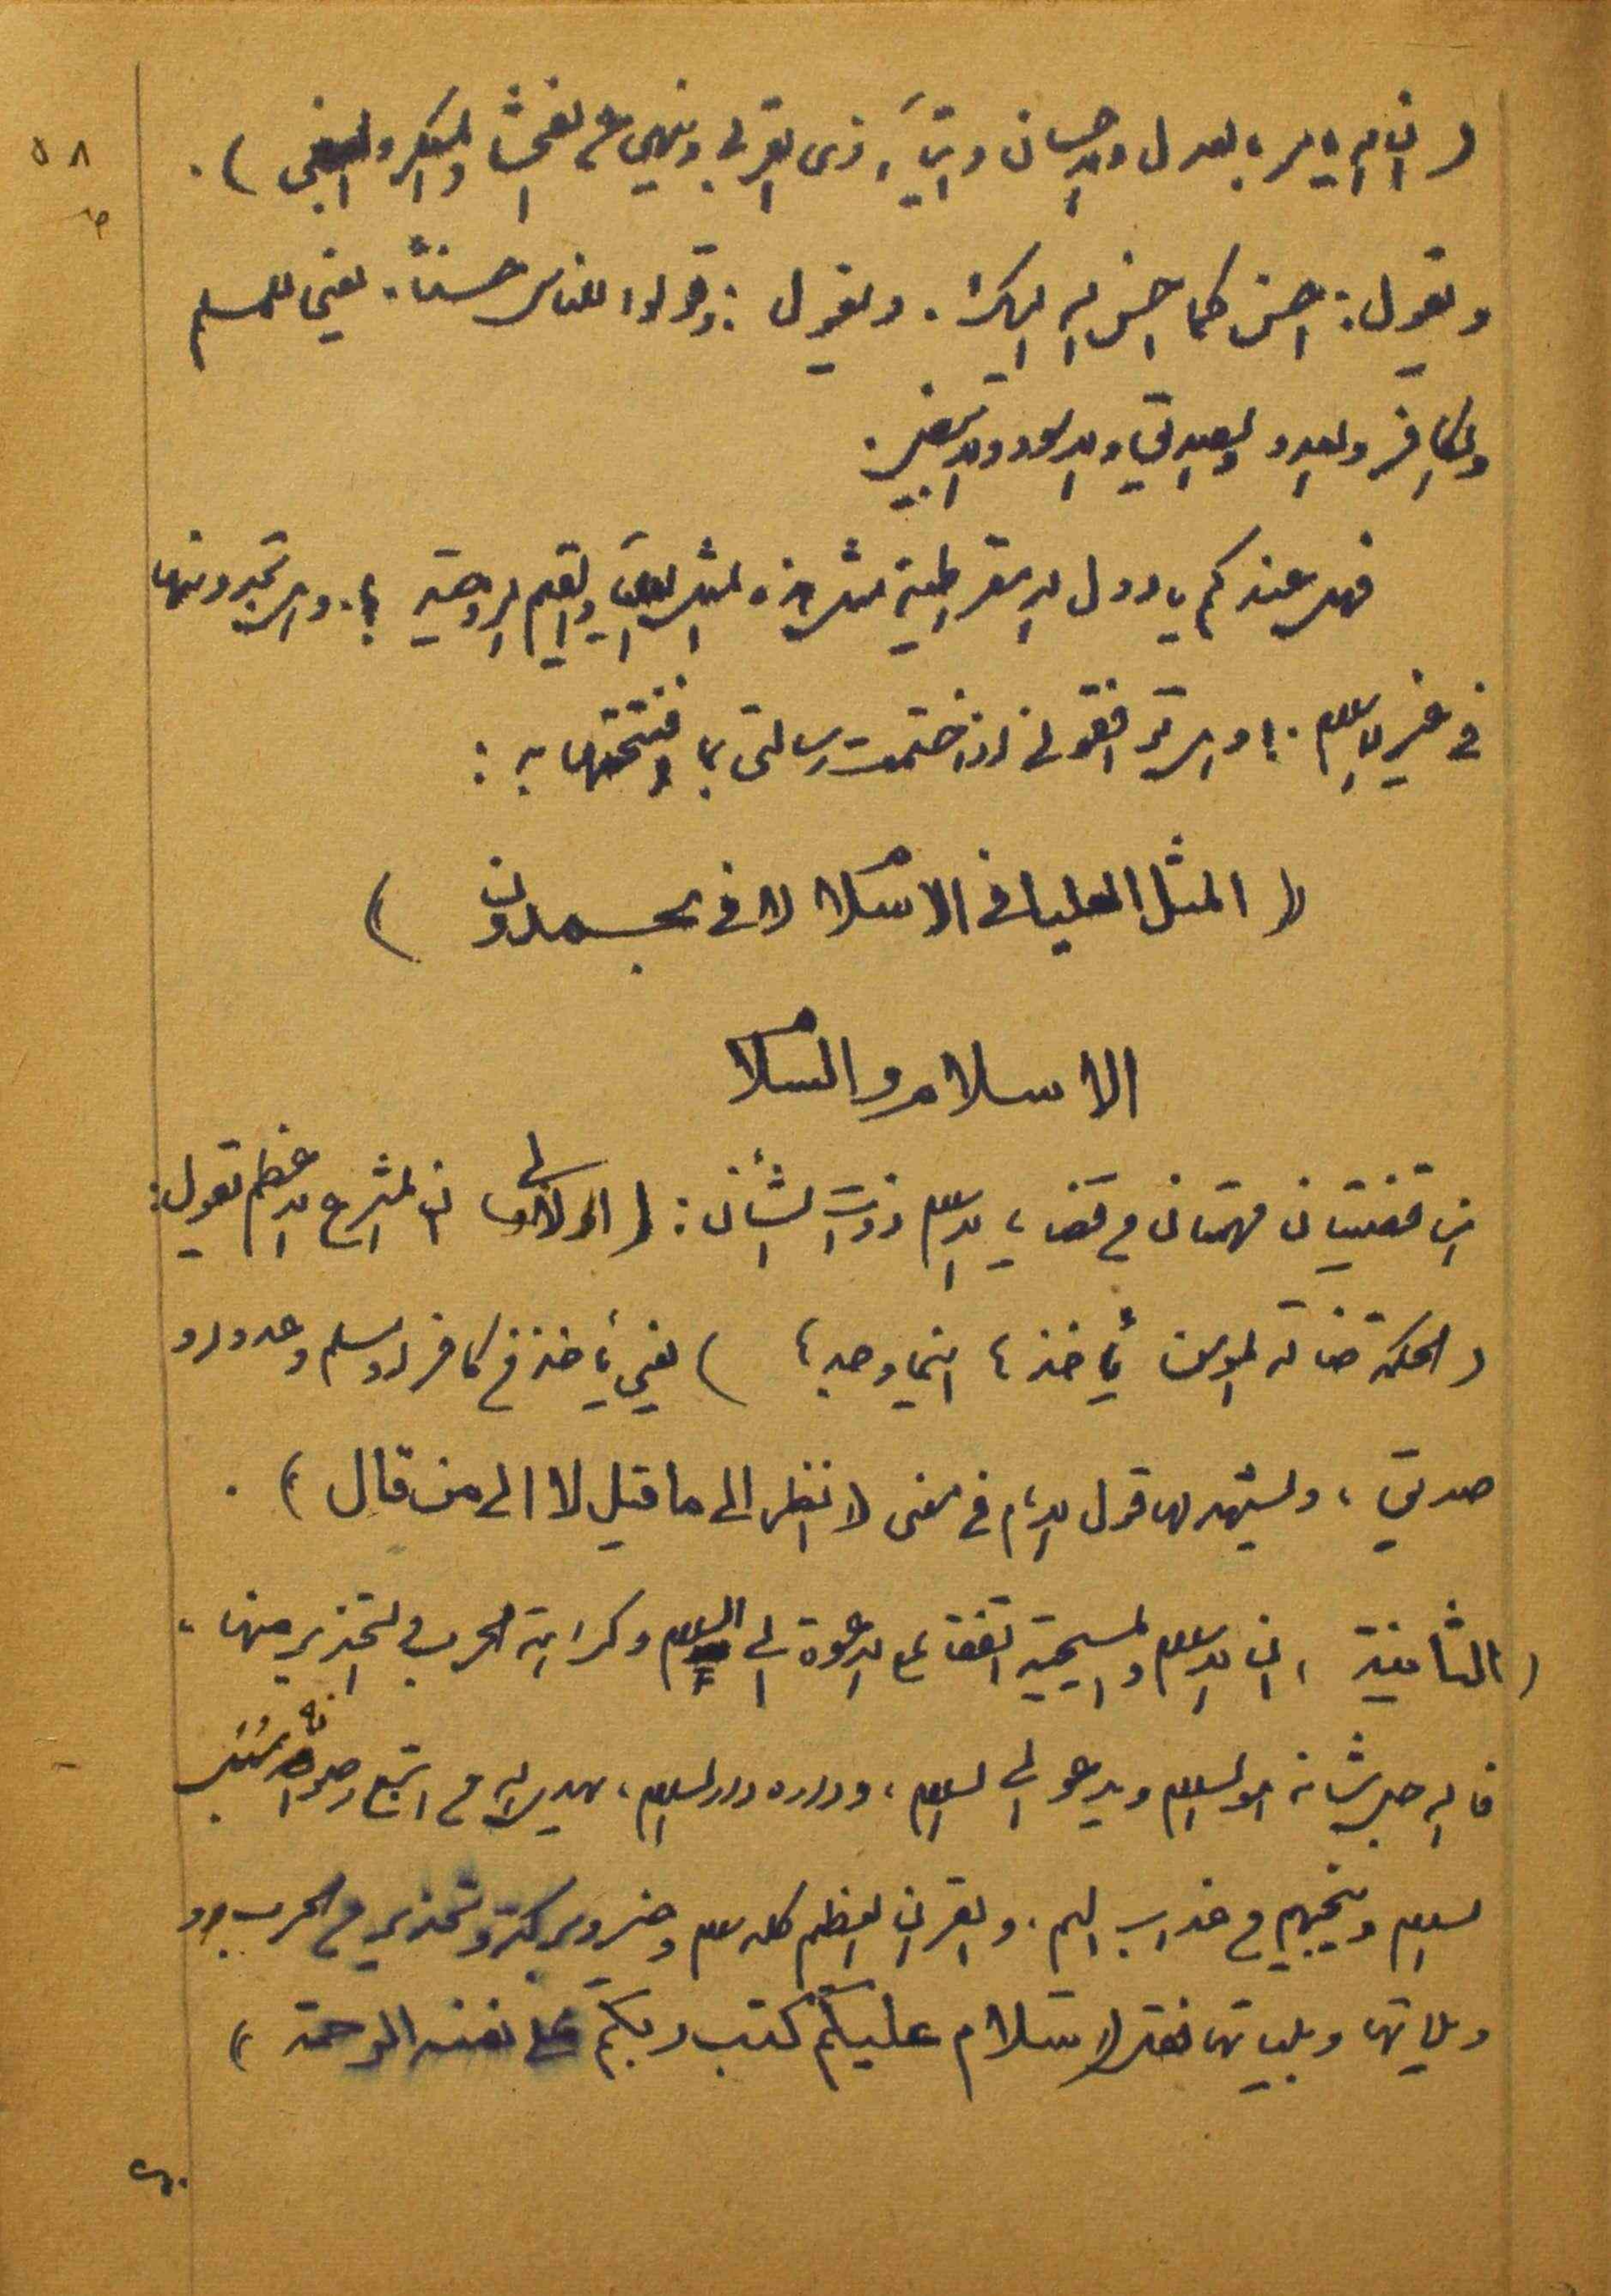 ٥٨
( ان الله يامر بالعدل والاحسان وايتآء ذى القربى وينهى عن الفحشآ والمنكر والبغى ) .
ويقول : احسن كما احسن الله اليك . ويقول : وقولوا للناس حسناً . يعنى للمسلم
والكافر والعدو والصديق والاسود والابيض .
فهل عندكم يا دول الديمقراطية مثل هذه المثل العليا والقيم الروحية ؟ . وهل تجدونها
في غير الاسلام . ! وهل توافقونى اذا ختمت رسالتى بما افتتحتها به :
( المثل العليا في الاسلام لا في بحمدون )
الاسلام والسلام
ان قضيتان مهمتان من قضايا الاسلام ذوات الشأن : ( الاولى ان المشرع الاعظم يقول :
( الحكمة ضالة المومن يأخذها اينما وجدها ) يعني يأخذ من كافر او مسلم وعدو او
صديق ، ويشهد لها قول الامام في معنى ( انظر الى ما قيل لا الى من قال ) .
( الثانية ، ان الاسلام والمسيحية اتفقا على الدعوة الى السلام وكراهة الحرب والتحذير منها ،
فالله جل شأنه هو السلام ويدعو الى السلام ، وداره دار السلام ، يهدي الله من اتبع رضوانه سُبُل
السلام وينجيهم من عذاب اليم . والقرآن العظيم كله سلام وخير وبركة وتحذير من الحرب
وويلاتها وبلياتها فقل ( سلام عليكم كتب ربكم على نفسه الرحمة )